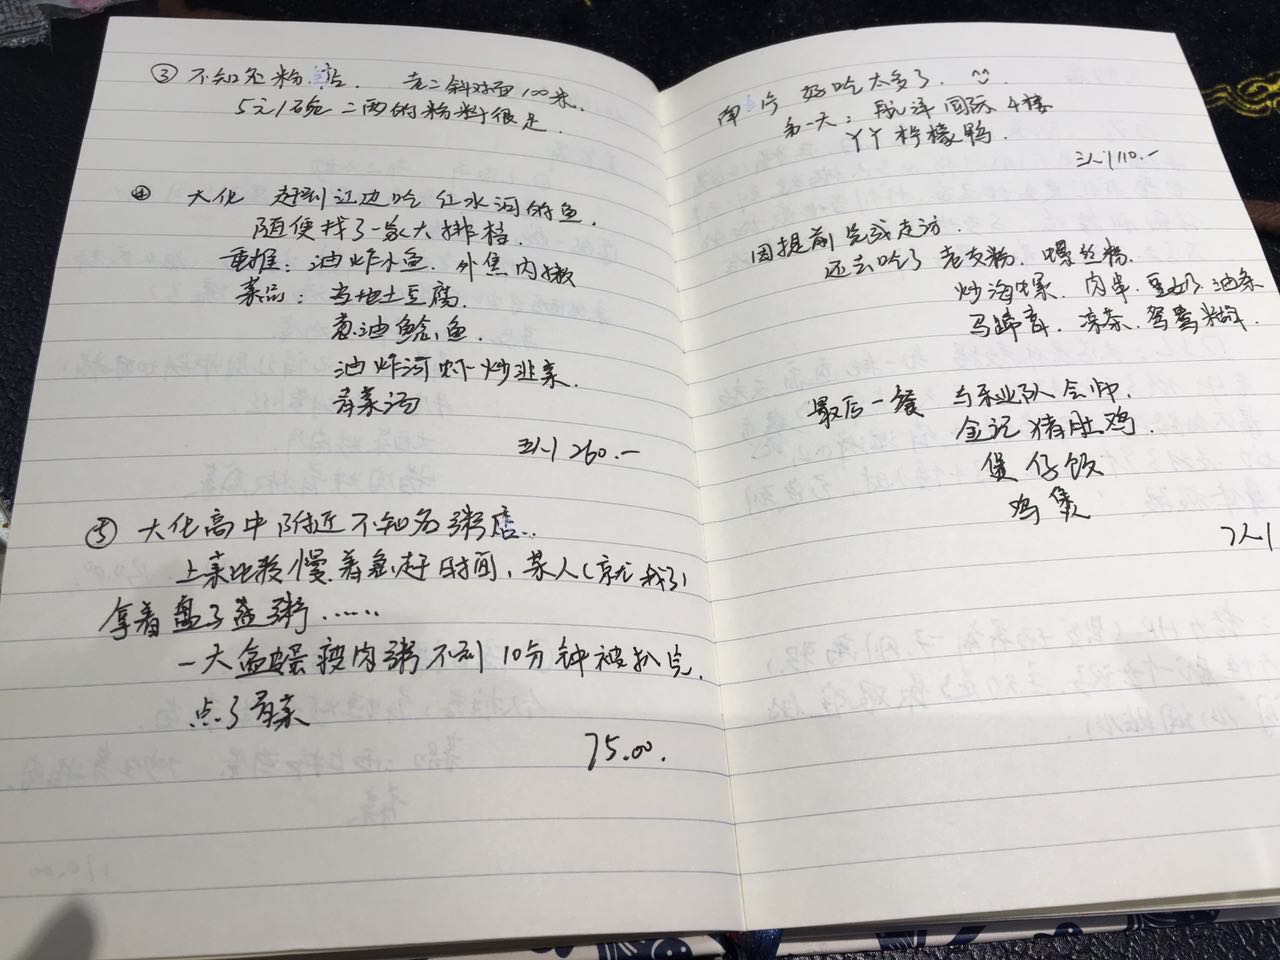 ③ 不知名粉店. 老二斜对面100米.
5元1碗 二两的粉料很足.
④ 大化 赶到江边吃红水河的鱼.
随便找了一家大排档.
重推: 油炸小鱼. 外焦内嫩
菜品: 当地土豆腐.
葱油鲶鱼.
油炸河虾炒韭菜.
青菜汤
3人 260.—
⑤ 大化高中附近不知名粥店..
上菜比较慢.着急赶时间, 某人(就我了)
拿着盘子盛粥······
一大盆蛋瘦肉粥不到10分钟被扒完.
点了青菜
75.00.
南宁 好吃太多了.
第一天: 航洋国际 4楼
丫丫柠檬鸭.
三人110.—
因提前完成走访.
还去吃了老友粉. 螺丝粉.
炒海螺. 肉串. 豆奶油条
马蹄膏. 凉茶. 鸳鸯糊
最后一餐 与禾业队会师.
金记猪肚鸡.
煲仔饭
鸡煲
7人1